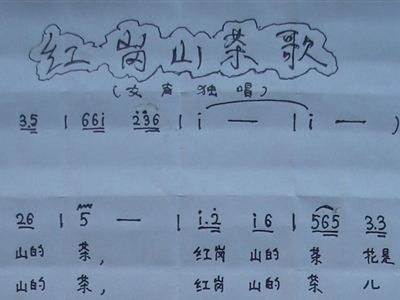 红岗山茶歌
(女声独唱)
3.5 | 66i 236 | i — | i — )
26 | 5 — | i.2 i6 | 565 3.3
山的 茶, 红岗 山的 茶 花是
山的 茶, 红岗 山的 茶 儿